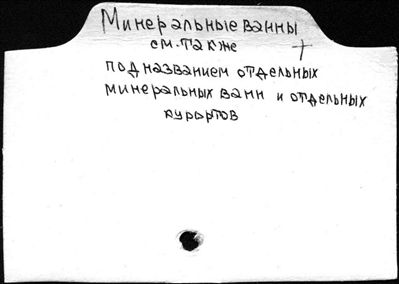 Минеральные ванны
см. также +
под названием отдельных
минеральных ванн и отдельных
курортов